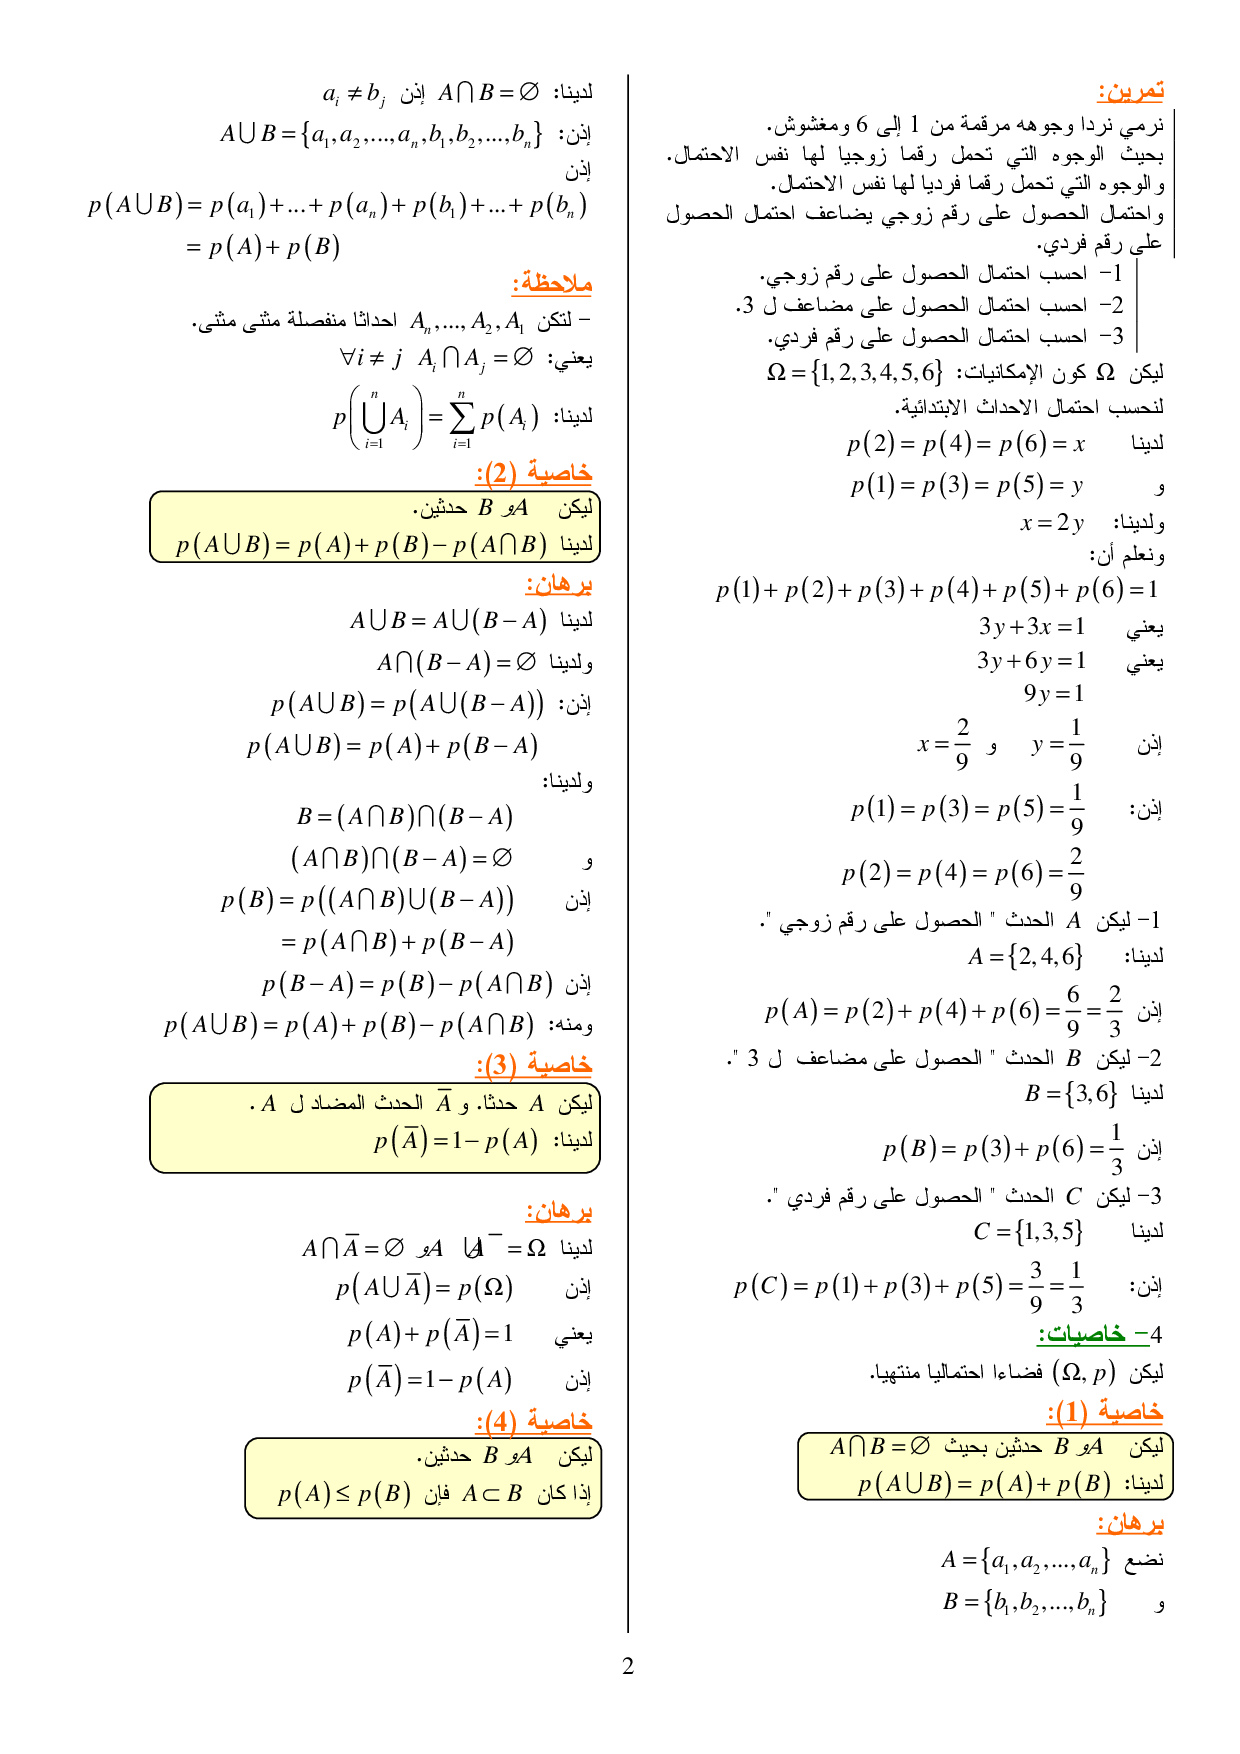 تمرين:
نرمي نردا وجوهه مرقمة من 1 إلى 6 ومغشوش.
بحيث الوجوه التي تحمل رقما زوجيا لها نفس الاحتمال.
والوجوه التي تحمل رقما فرديا لها نفس الاحتمال.
واحتمال الحصول على رقم زوجي يضاعف احتمال الحصول
على رقم فردي.
1- احسب احتمال الحصول على رقم زوجي.
2- احسب احتمال الحصول على مضاعف ل 3.
3- احسب احتمال الحصول على رقم فردي.
ليكن Ω كون الإمكانيات: Ω = {1,2,3,4,5,6}
لنحسب احتمال الاحداث الابتدائية.
لدينا p(2) = p(4) = p(6) = x
و p(1) = p(3) = p(5) = y
ولدينا: x = 2y
ونعلم أن:
p(1) + p(2) + p(3) + p(4) + p(5) + p(6) = 1
يعني 3y + 3x = 1
يعني 3y + 6y = 1
9y = 1
إذن y = 1/9 و x = 2/9
إذن: p(1) = p(3) = p(5) = 1/9
p(2) = p(4) = p(6) = 2/9
1- ليكن A الحدث " الحصول على رقم زوجي ".
لدينا: A = {2,4,6}
إذن p(A) = p(2) + p(4) + p(6) = 6/9 = 2/3
2- ليكن B الحدث " الحصول على مضاعف ل 3 ".
لدينا B = {3,6}
إذن p(B) = p(3) + p(6) = 1/3
3- ليكن C الحدث " الحصول على رقم فردي ".
لدينا C = {1,3,5}
إذن: p(C) = p(1) + p(3) + p(5) = 3/9 = 1/3
4- خاصيات:
ليكن (Ω, p) فضاءا احتماليا منتهيا.
خاصية (1):
ليكن A و B حدثين بحيث A ∩ B = ∅
لدينا: p(A ∪ B) = p(A) + p(B)
برهان:
نضع A = {a₁, a₂, ..., aₙ}
و B = {b₁, b₂, ..., bₙ}
لدينا: A ∩ B = ∅ إذن aᵢ ≠ bⱼ
إذن: A ∪ B = {a₁, a₂, ..., aₙ, b₁, b₂, ..., bₙ}
إذن
p(A ∪ B) = p(a₁) + ... + p(aₙ) + p(b₁) + ... + p(bₙ)
= p(A) + p(B)
ملاحظة:
- لتكن Aₙ, ..., A₂, A₁ احداثا منفصلة مثنى مثنى.
يعني: ∀i ≠ j Aᵢ ∩ Aⱼ = ∅
لدينا: p(⋃ᵢ₌₁ⁿ Aᵢ) = ∑ᵢ₌₁ⁿ p(Aᵢ)
خاصية (2):
ليكن A و B حدثين.
لدينا p(A ∪ B) = p(A) + p(B) − p(A ∩ B)
برهان:
لدينا A ∪ B = A ∪ (B − A)
ولدينا A ∩ (B − A) = ∅
إذن: p(A ∪ B) = p(A ∪ (B − A))
p(A ∪ B) = p(A) + p(B − A)
ولدينا:
B = (A ∩ B) ∩ (B − A)
و (A ∩ B) ∩ (B − A) = ∅
إذن p(B) = p((A ∩ B) ∪ (B − A))
= p(A ∩ B) + p(B − A)
إذن p(B − A) = p(B) − p(A ∩ B)
ومنه: p(A ∪ B) = p(A) + p(B) − p(A ∩ B)
خاصية (3):
ليكن A حدثا. و A̅ الحدث المضاد ل A .
لدينا: p(A̅) = 1 − p(A)
برهان:
لدينا A ∪ A̅ = Ω و A ∩ A̅ = ∅
إذن p(A ∪ A̅) = p(Ω)
يعني p(A) + p(A̅) = 1
إذن p(A̅) = 1 − p(A)
خاصية (4):
ليكن A و B حدثين.
إذا كان A ⊂ B فإن p(A) ≤ p(B)
2